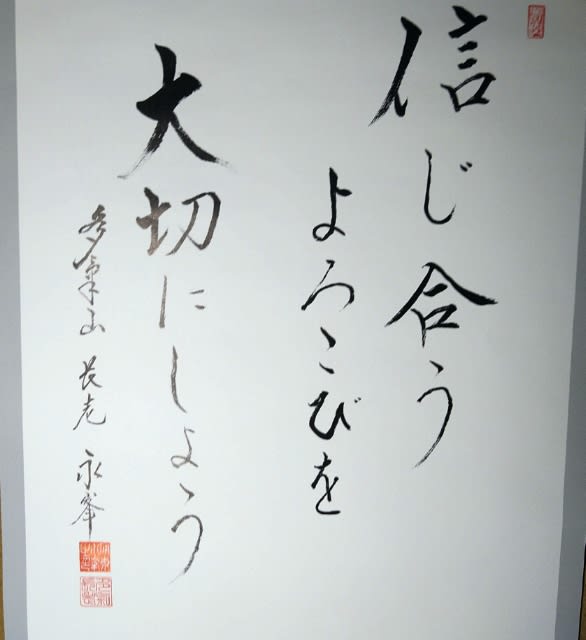 信じ合う
よろこびを
大切にしよう
多気山 長老 永峯